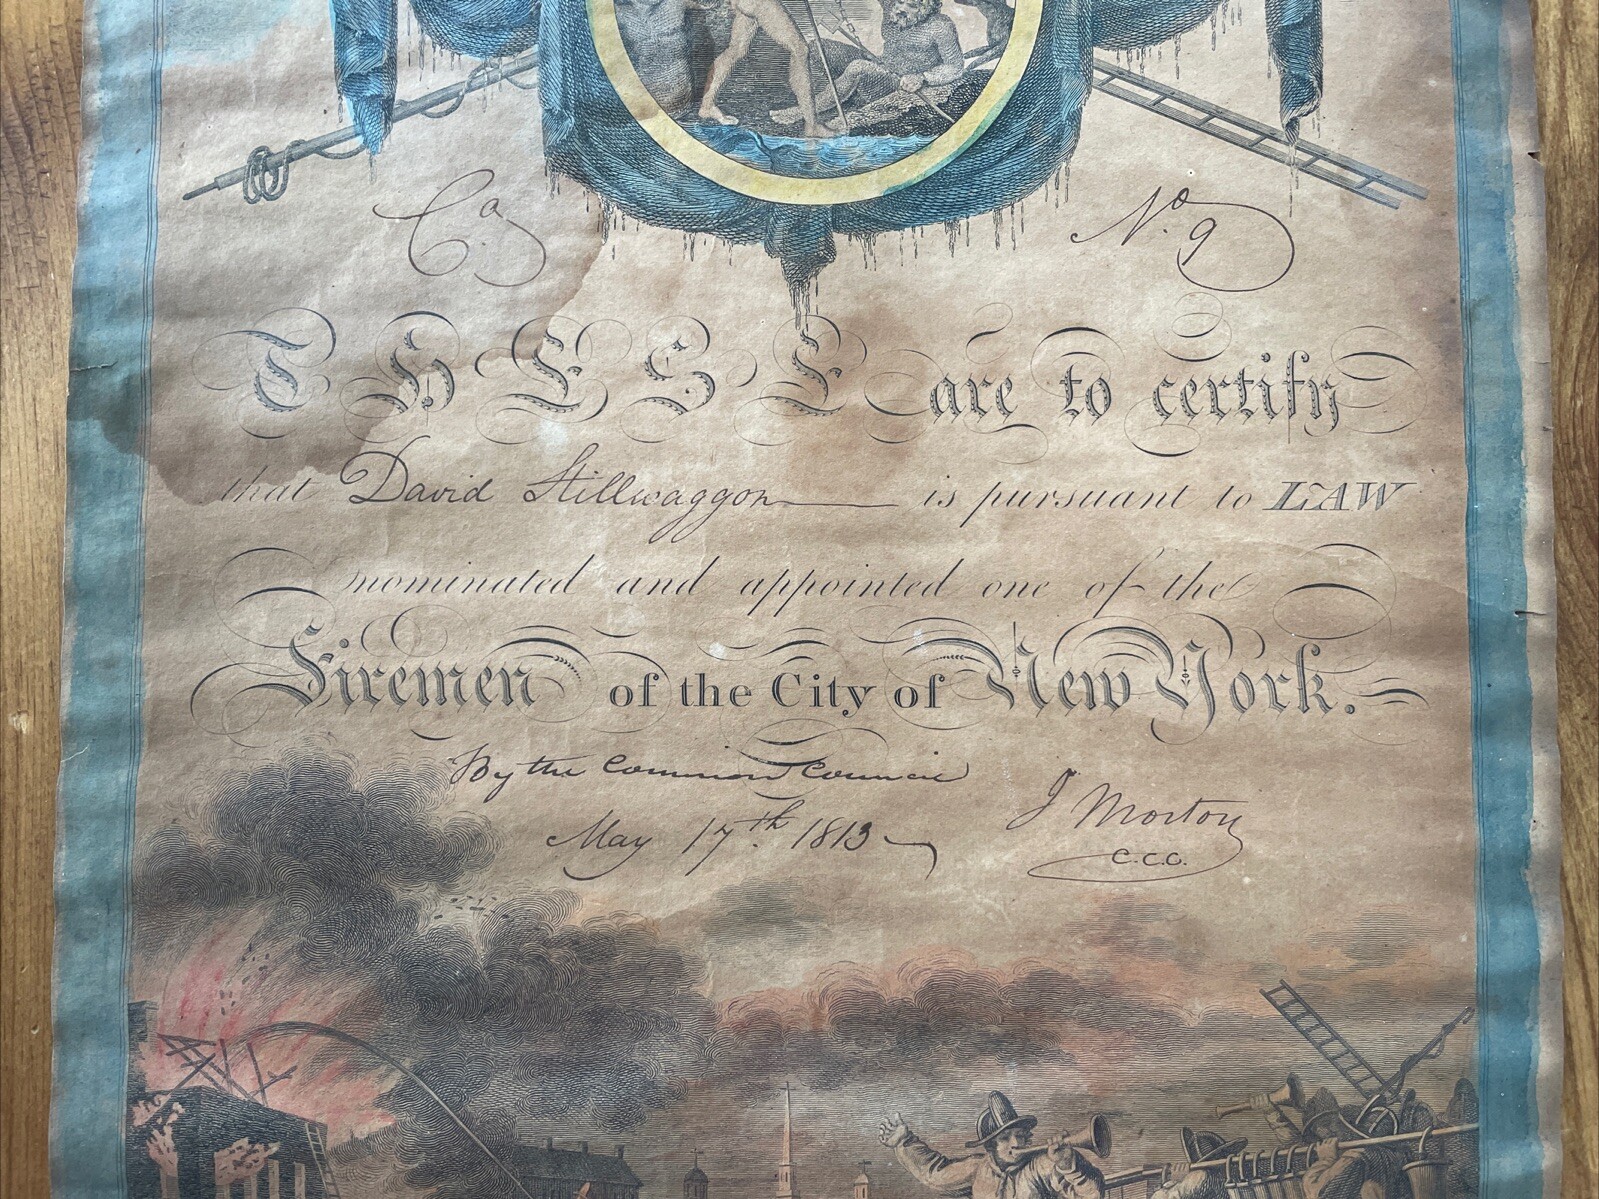 Co. No. 9
THESE are to certify
that David Stillwaggon is pursuant to LAW
nominated and appointed one of the
Firemen of the City of New York.
By the Common Council
May 17th. 1813
J Morton
C.C.C.